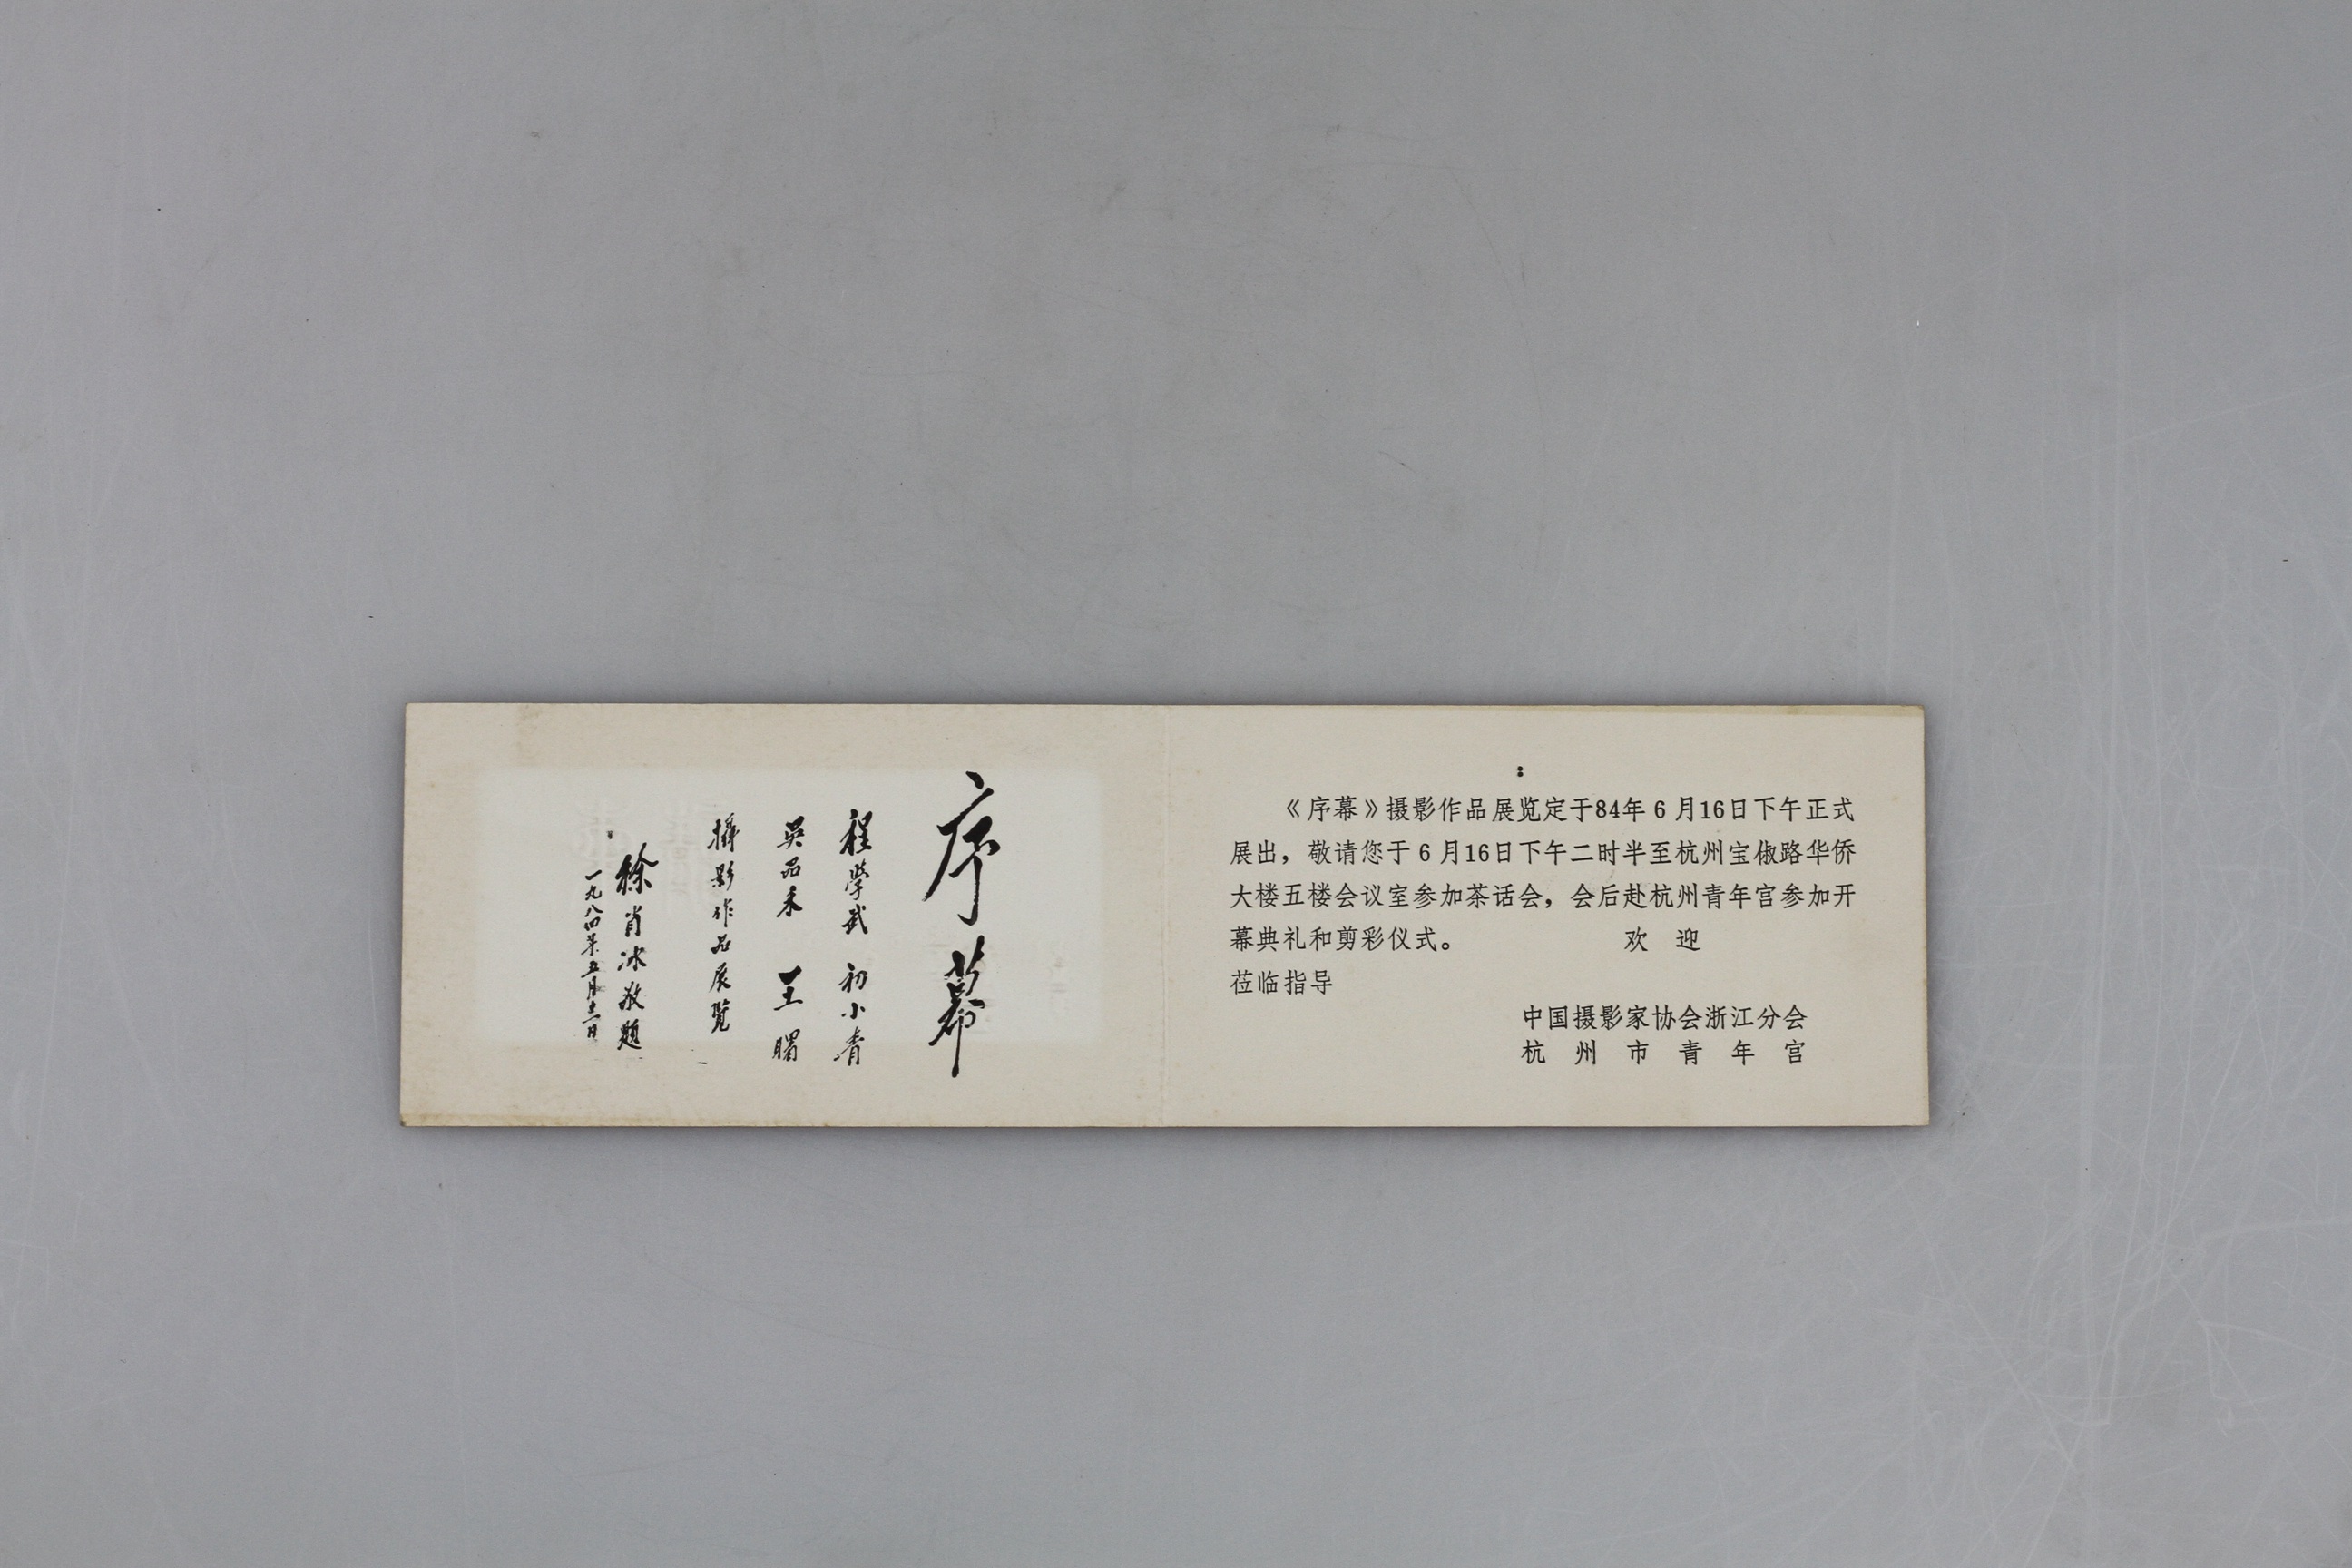 序幕
程學武 初小青
吳品禾 王
攝影作品展覽
徐肖冰敬題
一九八四年五月
：
《序幕》摄影作品展览定于84年6月16日下午正式
展出，敬请您于6月16日下午二时半至杭州宝俶路华侨
大楼五楼会议室参加茶话会，会后赴杭州青年宫参加开
幕典礼和剪彩仪式。 欢 迎
莅临指导
中国摄影家协会浙江分会
杭州市青年宫